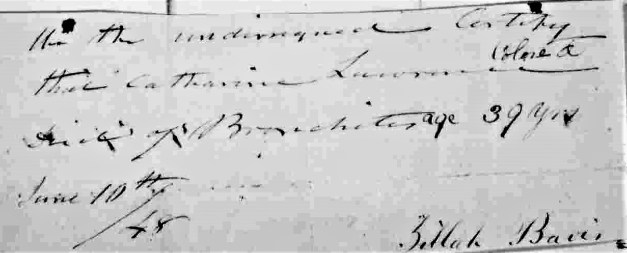 We the undersigned Certify
that Catharine Lawrence Colored
Died of Bronchitis age 39 Yrs
June 10th
/48
Zillah Bavis